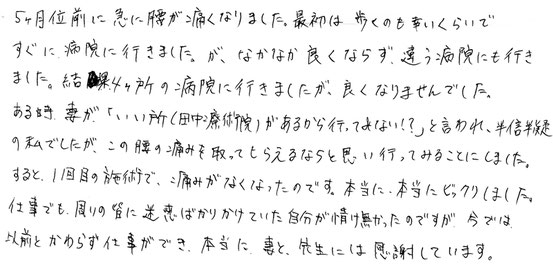 5ヶ月位前に急に腰が痛くなりました。最初は歩くのも辛いくらいで
すぐに病院に行きました。が、なかなか良くならず、違う病院にも行き
ました。結果4ヶ所の病院に行きましたが、良くなりませんでした。
ある時、妻が「いい所(田中療術院)があるから行ってみない!?」と言われ、半信半疑
の私でしたが、この腰の痛みを取ってもらえるならと思い行ってみることにしました。
すると、1回目の施術で、痛みがなくなったのです。本当に、本当にビックリしました。
仕事でも周りの皆に迷惑ばかりかけていた自分が情け無かったのですが、今では
以前とかわらず仕事ができ、本当に、妻と、先生には感謝しています。